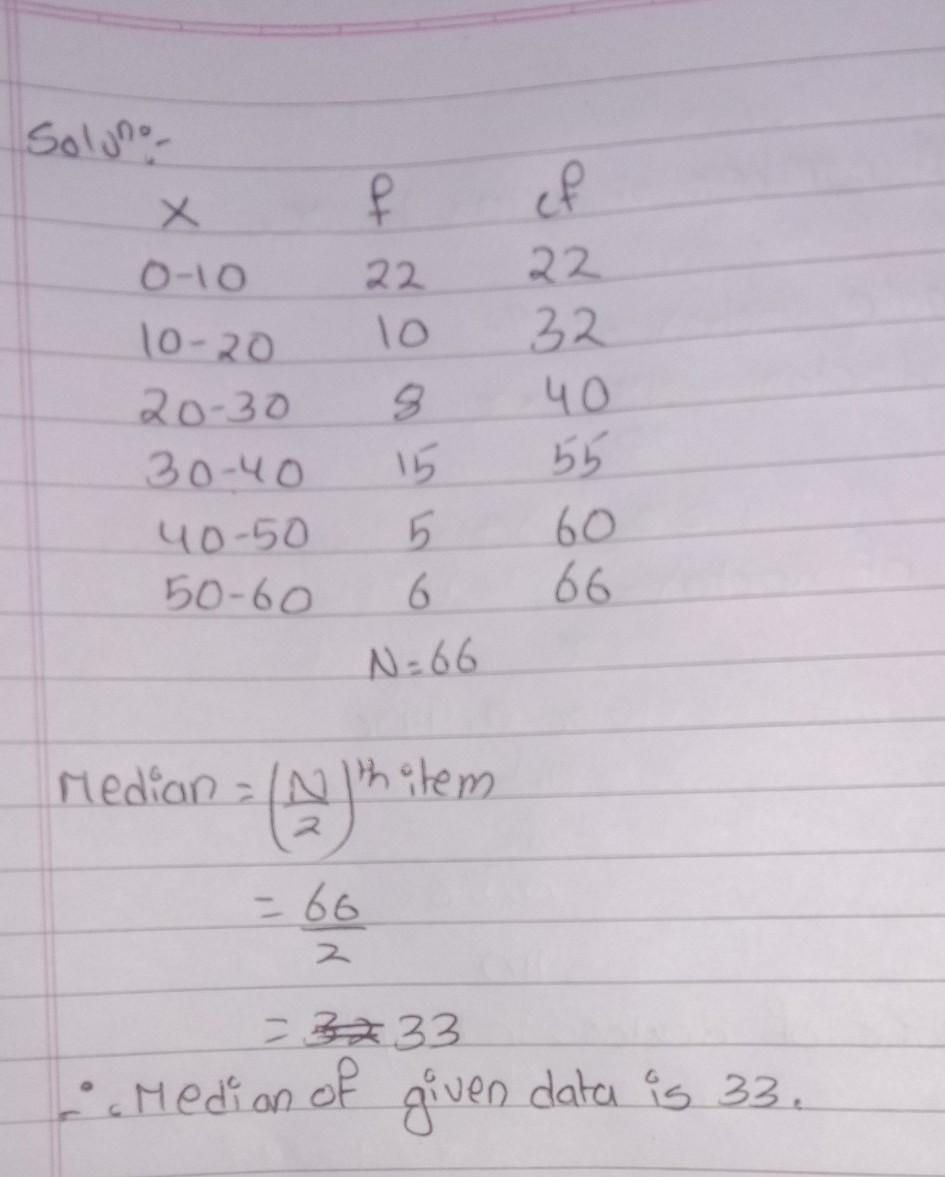 Solun:-
x f cf
0-10 22 22
10-20 10 32
20-30 8 40
30-40 15 55
40-50 5 60
50-60 6 66
N=66
Median = (N/2)th item
= 66/2
= 33
∴ Median of given data is 33.